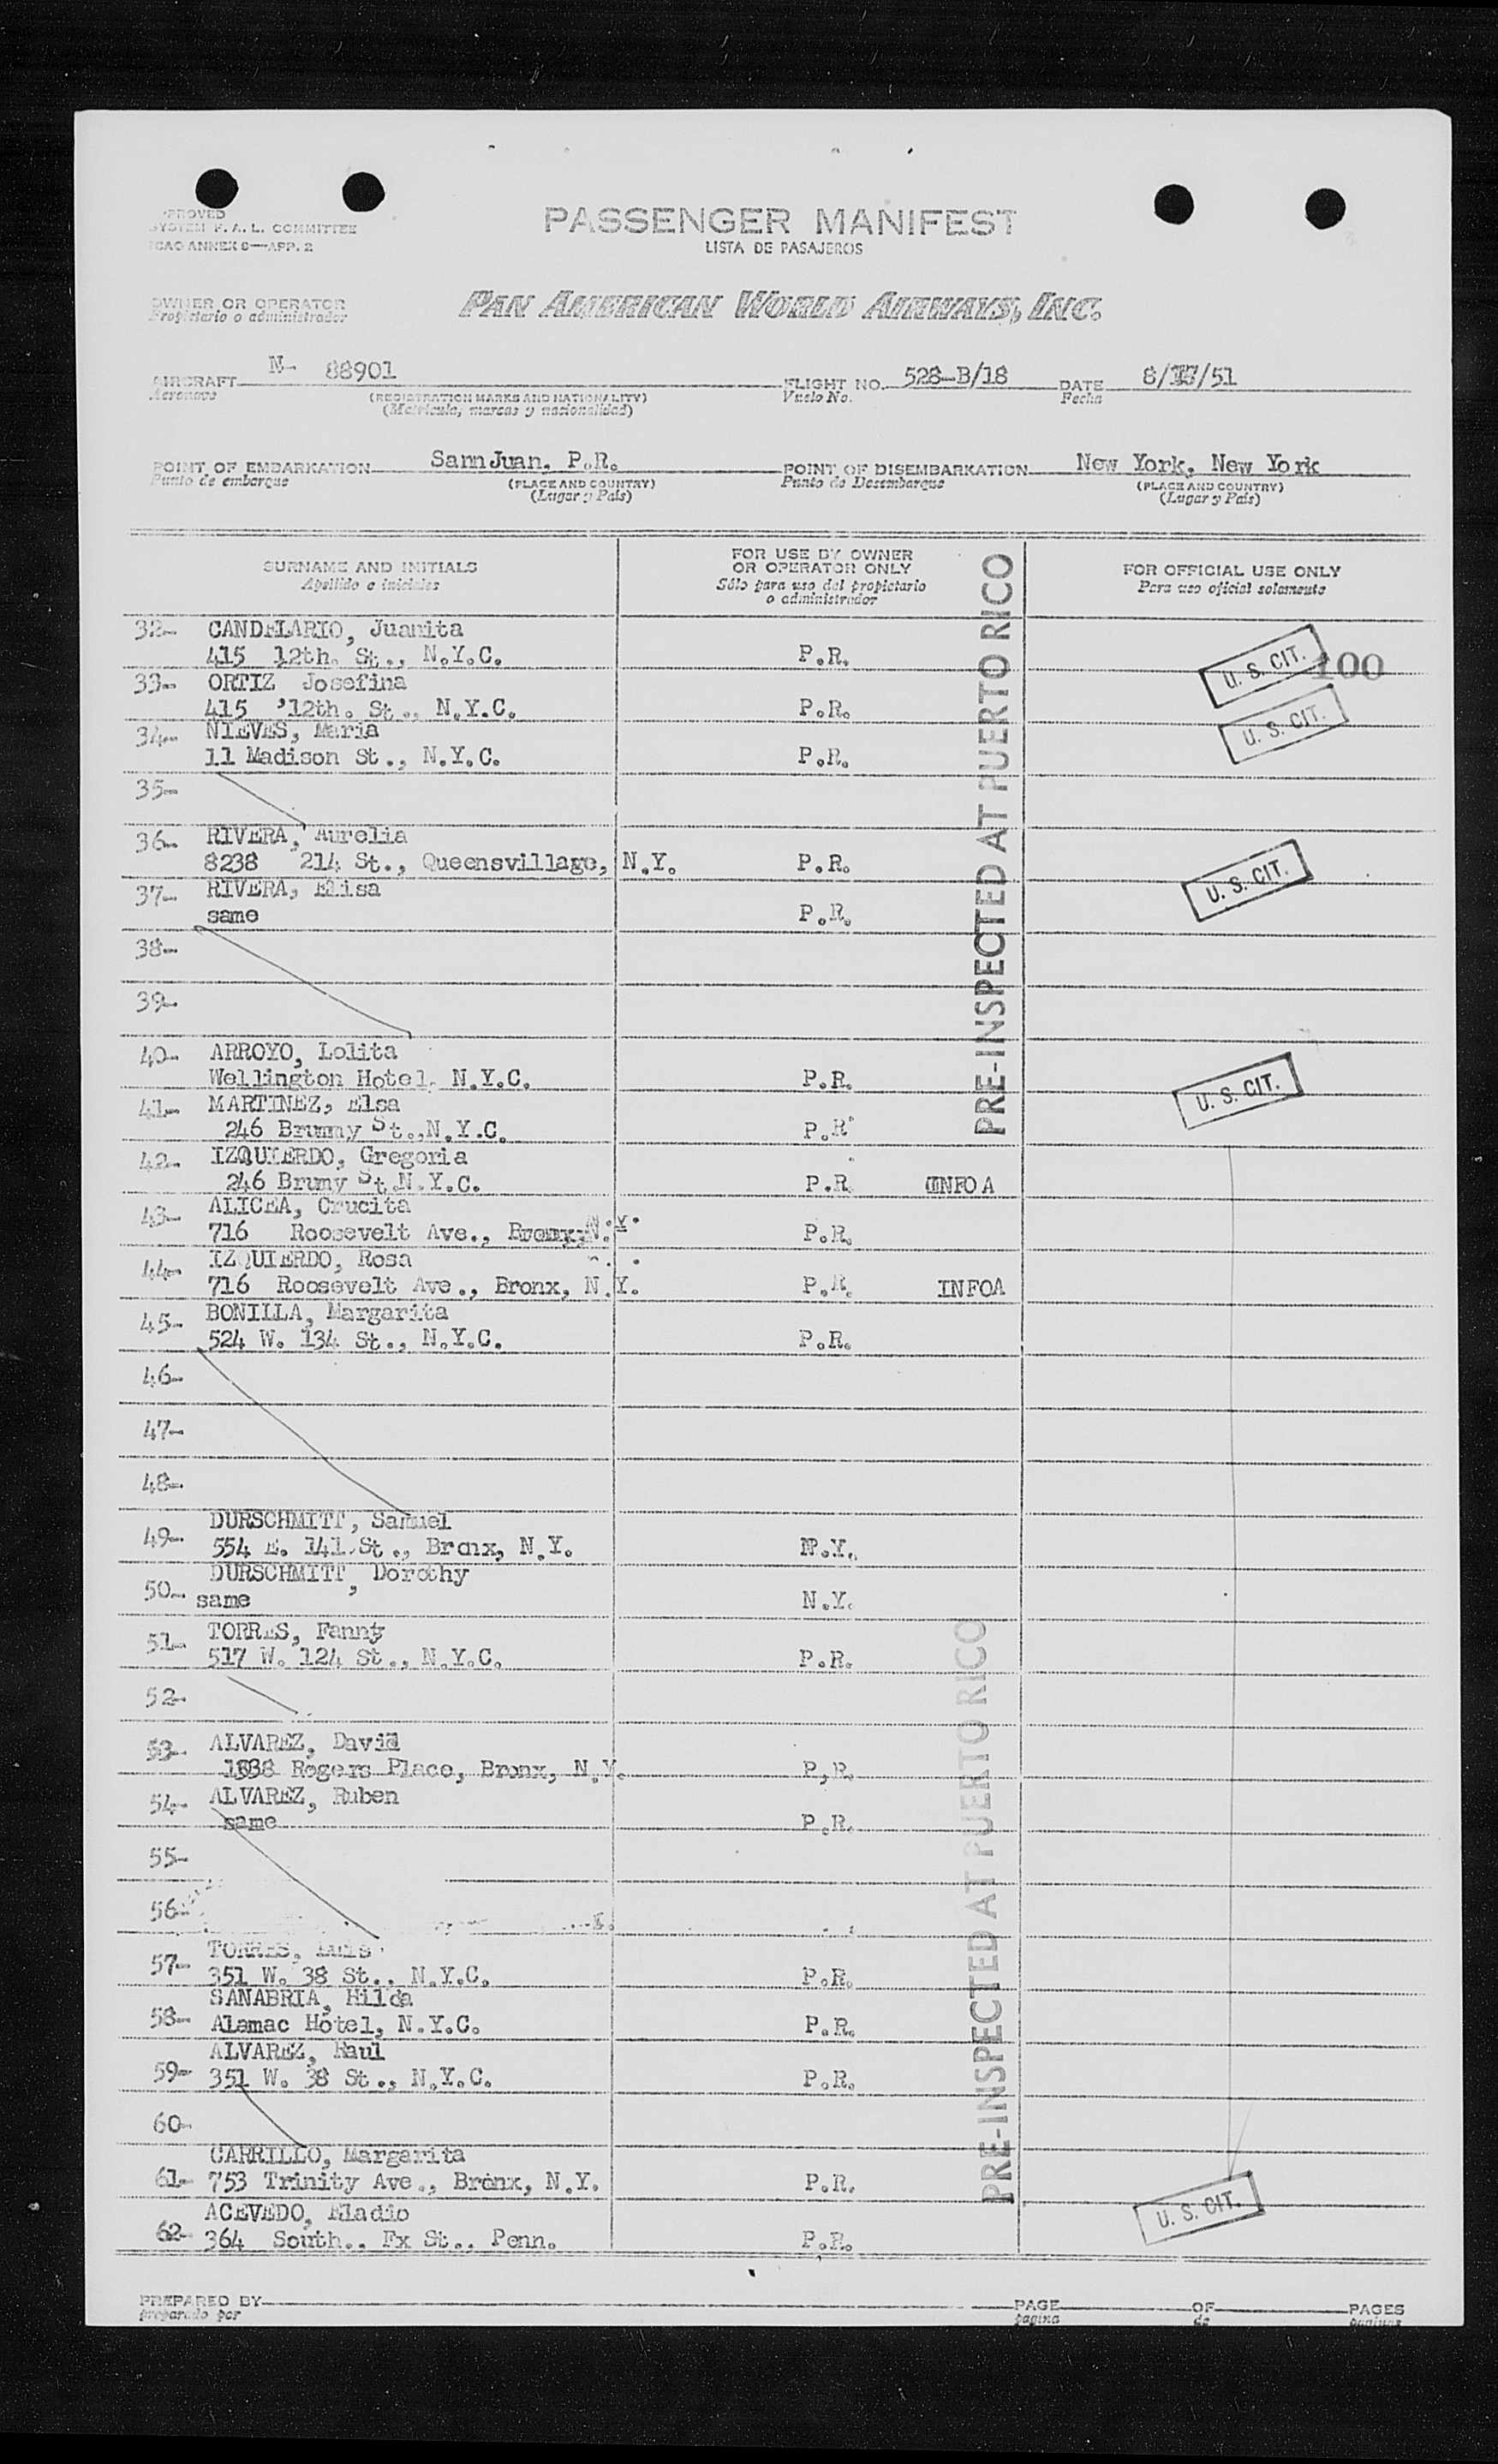 PROVED
SYSTEM F. A. L. COMMITTEE
ICAO ANNEX 9—APP. 2
PASSENGER MANIFEST
LISTA DE PASAJEROS
OWNER OR OPERATOR
Propietario o administrador
PAN AMERICAN WORLD AIRWAYS, INC.
AIRCRAFT N- 88901 FLIGHT NO. 528-B/18 DATE 8/ /51
Aeronave (REGISTRATION MARKS AND NATIONALITY) Vuelo No. Fecha
(Matricula, marcas y nacionalidad)
POINT OF EMBARKATION SannJuan, P.R. POINT OF DISEMBARKATION New York, New York
Punto de embarque (PLACE AND COUNTRY) Punto de Desembarque (PLACE AND COUNTRY)
(Lugar y País) (Lugar y País)
SURNAME AND INITIALS
Apellido e iniciales
FOR USE BY OWNER
OR OPERATOR ONLY
Sólo para uso del propietario
o administrador
FOR OFFICIAL USE ONLY
Para uso oficial solamente
PRE-INSPECTED AT PUERTO RICO
32- CANDELARIO, Juanita
415 12th. St., N.Y.C. P.R. U. S. CIT. 100
33- ORTIZ Josefina
415 '12th. St., N.Y.C. P.R. U. S. CIT.
34- NIEVES, Maria
11 Madison St., N.Y.C. P.R.
35-
36- RIVERA, Aurelia
8238 214 St., Queensvillage, N.Y. P.R. U. S. CIT.
37- RIVERA, Elisa
same P.R.
38-
39-
40- ARROYO, Lolita
Wellington Hotel, N.Y.C. P.R. U. S. CIT.
41- MARTINEZ, Elsa
246 Brumny St.,N.Y.C. P.R
42- IZQUIERDO, Gregoria
246 Brumy St N.Y.C. P.R INFOA
43- ALICEA, Crucita
716 Roosevelt Ave., Bronx, N.Y. P.R.
44- IZQUIERDO, Rosa
716 Roosevelt Ave., Bronx, N.Y. P.R. INFOA
45- BONILLA, Margarita
524 W. 134 St., N.Y.C. P.R.
46-
47-
48-
49- DURSCHMITT, Samuel
554 E. 141 St., Bronx, N.Y. N.Y.
50- DURSCHMITT, Dorothy
same N.Y.
51- TORRES, Fanny
517 W. 124 St., N.Y.C. P.R.
52-
PRE-INSPECTED AT PUERTO RICO
53- ALVAREZ, David
Rogers Place, Bronx, N.Y. P,R.
54- ALVAREZ, Ruben
same P.R.
55-
56-
57- TORRES, Luis
351 W. 38 St., N.Y.C. P.R.
58- SANABRIA, Hilda
Alamac Hotel, N.Y.C. P.R.
59- ALVAREZ, Raul
351 W. 38 St., N.Y.C. P.R.
60-
61- CARRILLO, Margarita
753 Trinity Ave., Bronx, N.Y. P.R.
62- ACEVEDO, Eladio
364 South., Fx St., Penn. P.R. U. S. CIT.
PREPARED BY PAGE OF PAGES
preparado por pagina de paginas